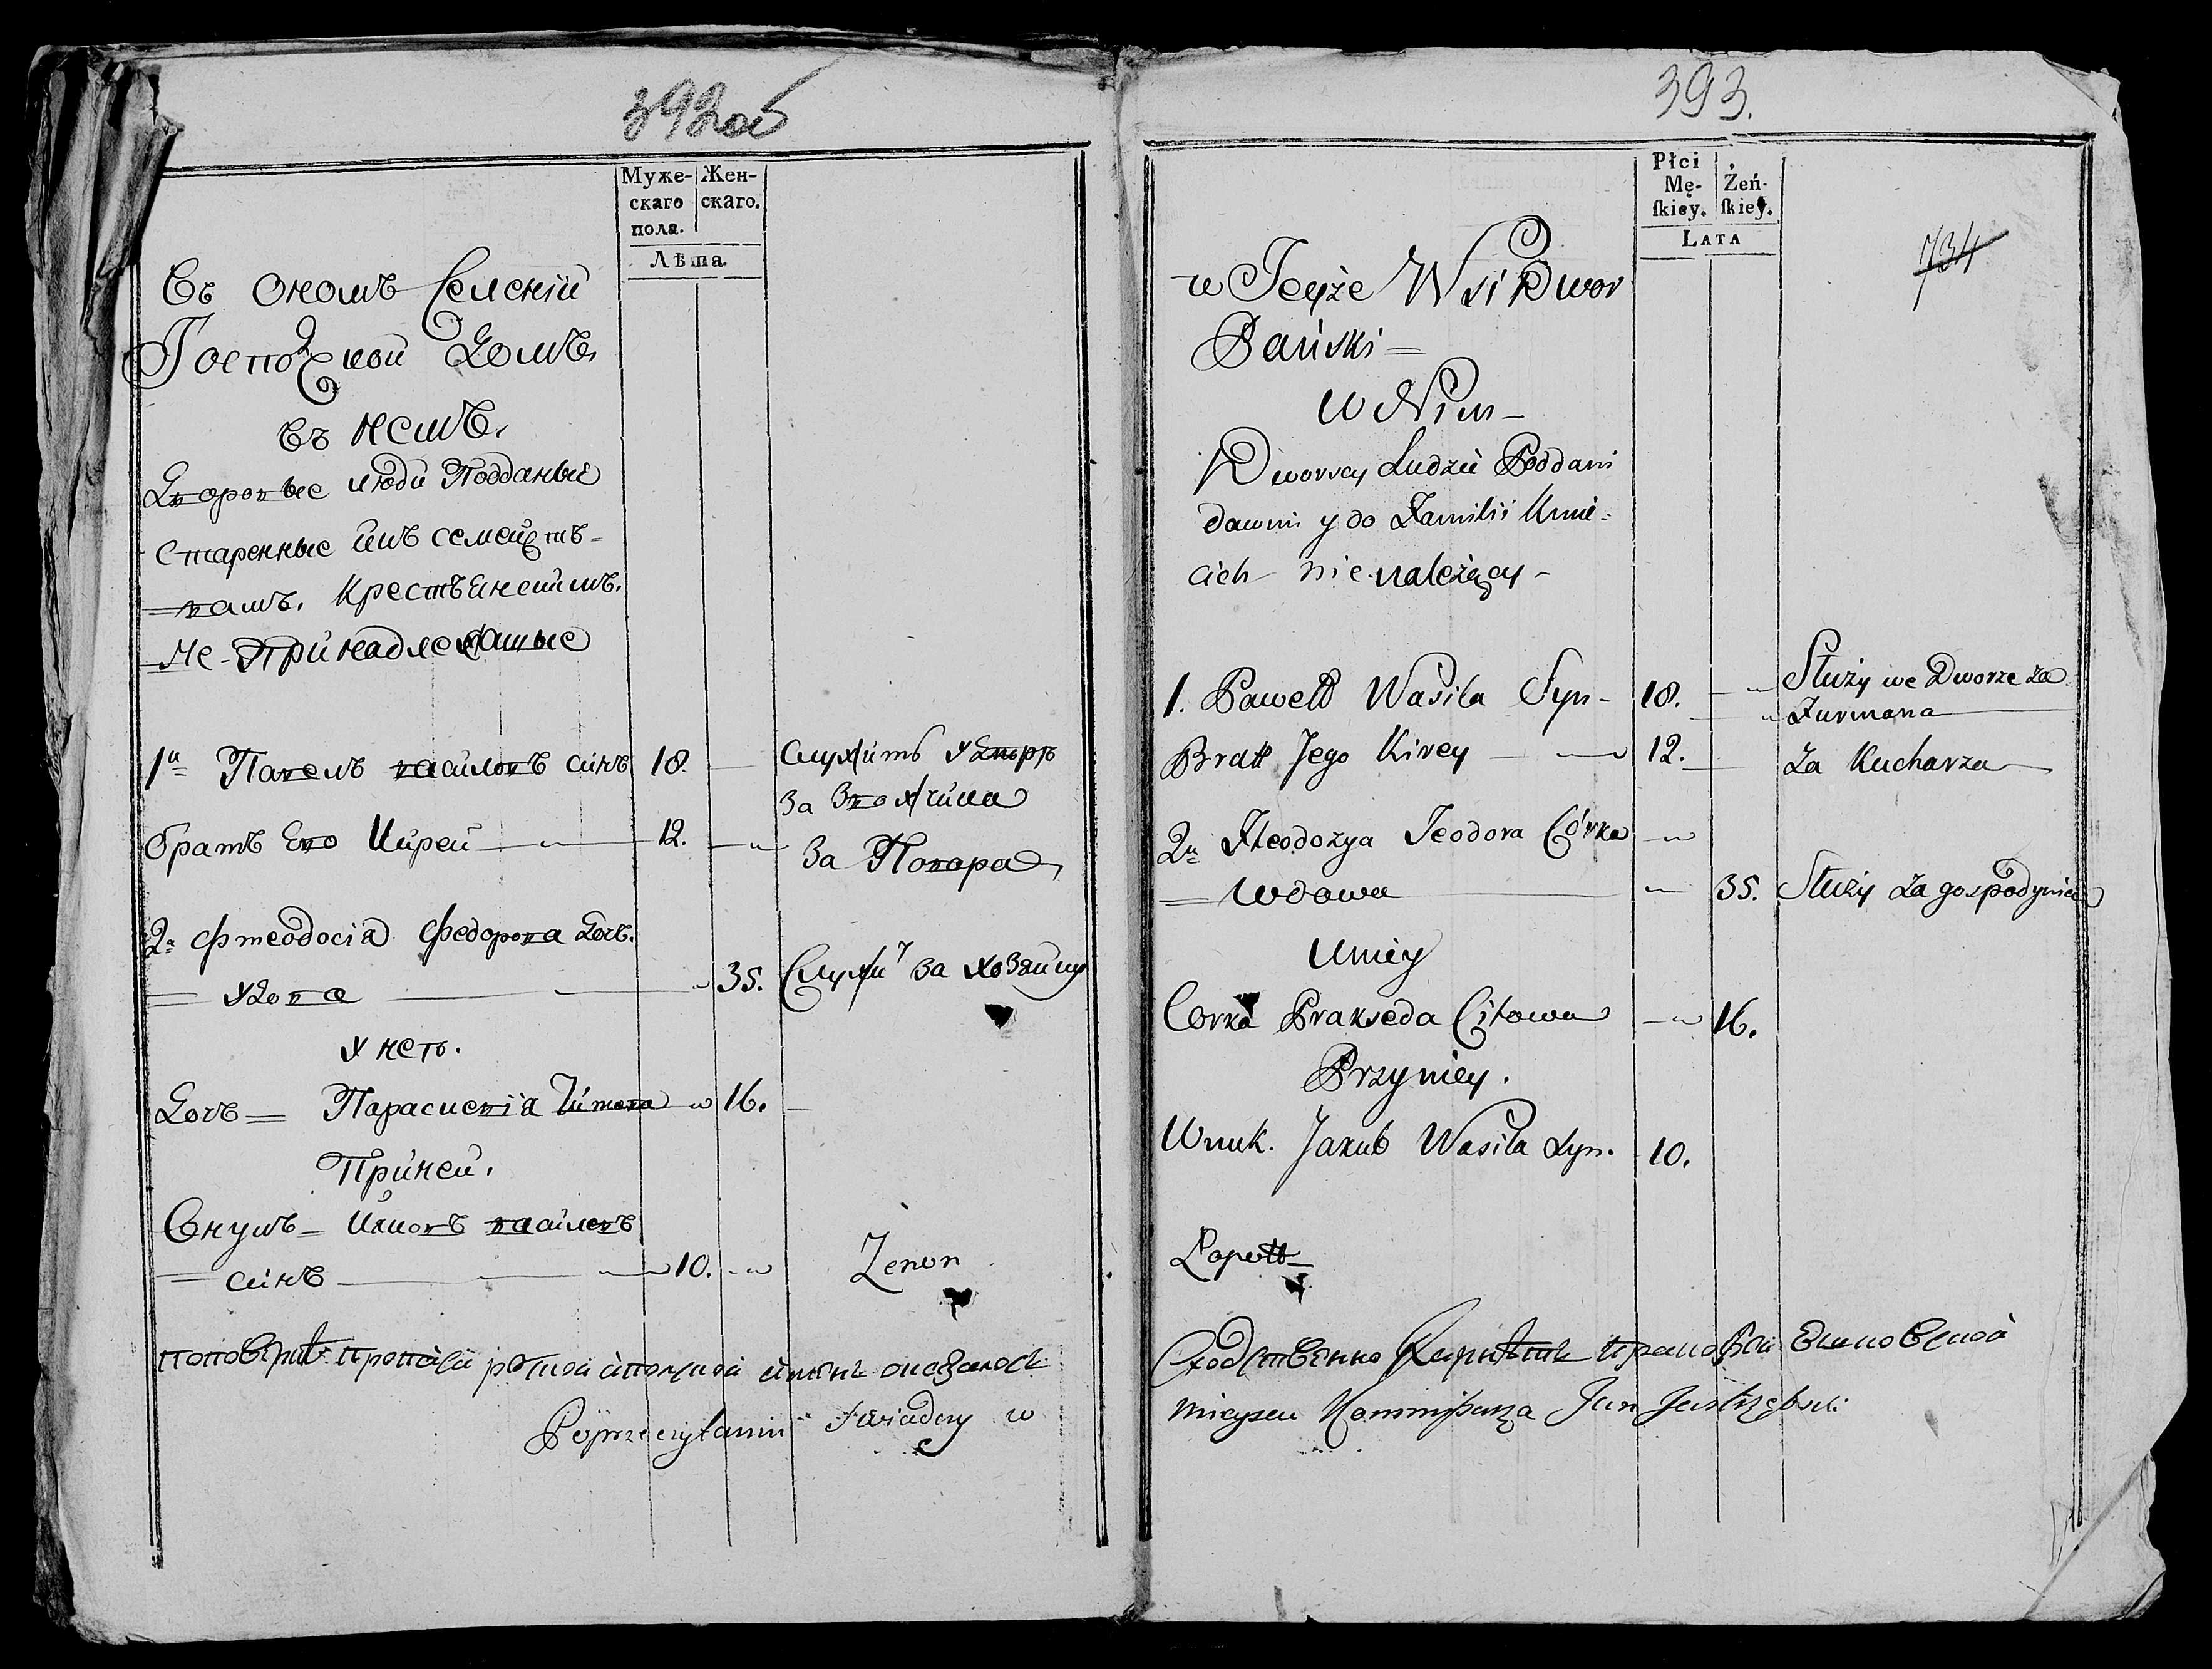 392об
Муже-
скаго
пола.
Жен-
скаго.
Лѣта.
Въ ономъ селеніи
Господской Домъ,
въ немъ,
Дворовые люди Подданые
старенные имъ семейст-
вамъ. Крестьянскимъ.
не-принадлежащые
1й Павелъ василовъ синъ 18. служитъ у Дворѣ
За возжчика
братъ Его Кирей 12. За Повара
2я Фтеодосія Федорова Дочь.
удова 35. Служит за хозяйку
у неть.
Дочъ = Парасмевія Титова 16.
Приней.
Внукъ - Яковъ василевъ
синъ 10.
Zenon
Poprzeczytaniu swiadczy w
393.
Płci
Mę-
skiey.
Żeń-
skiey.
LATA
734
w Teyże Wsi Dwor
Pański =
W Nim -
Dworscy Ludzie Poddani
dawni y do Familii Kmie=
cich nie należący -
1. Paweł Wasila Syn - 18. Służy we Dworze za
Furmana
Bratt Jego Kirey 12. Za Kucharza
2a Fteodozya Teodora Córka
= Wdowa 35. Służy za gospodynie
Uniey
Corka Prakseda Citowa 16.
Przyniey.
Wnuk. Jakub Wasila Syn. 10.
Łopott
mieyscu Kommissarza Jan Jastrzębski